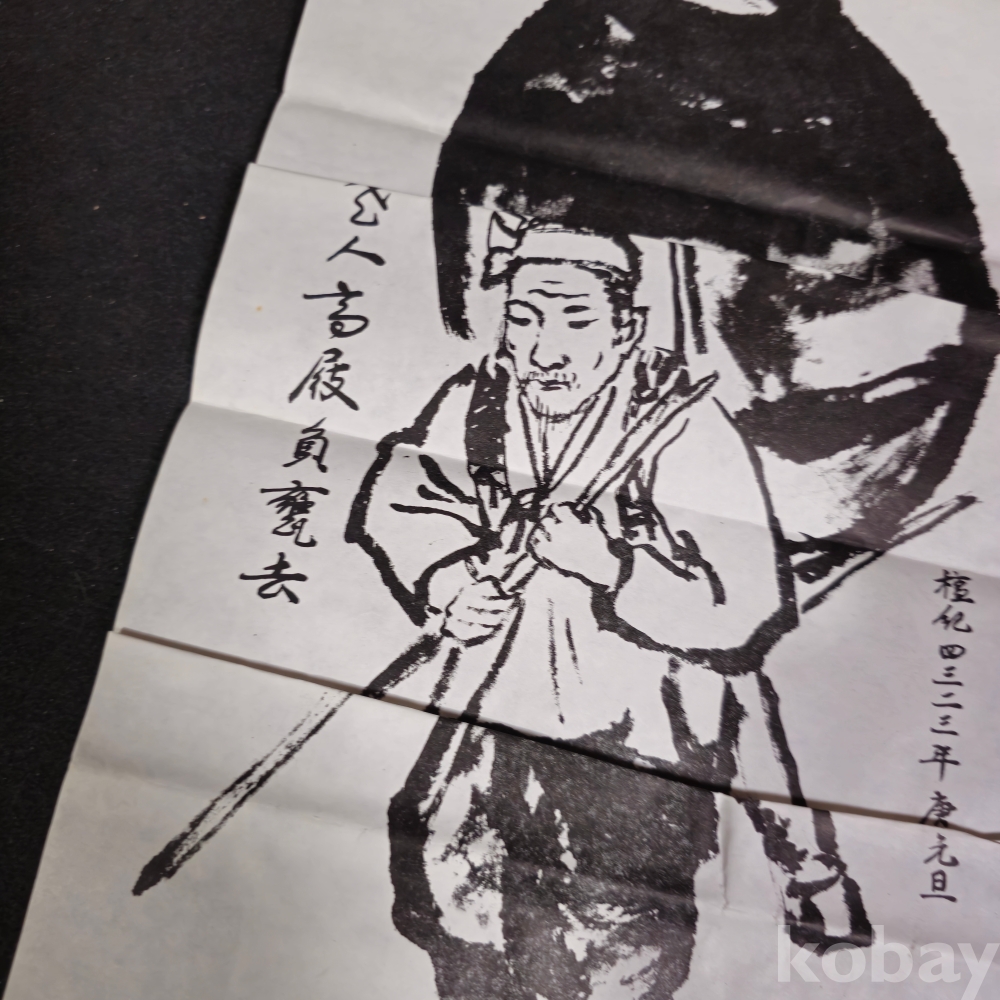 檀紀四三二三年 庚元旦
人高屐負甕去
kobay